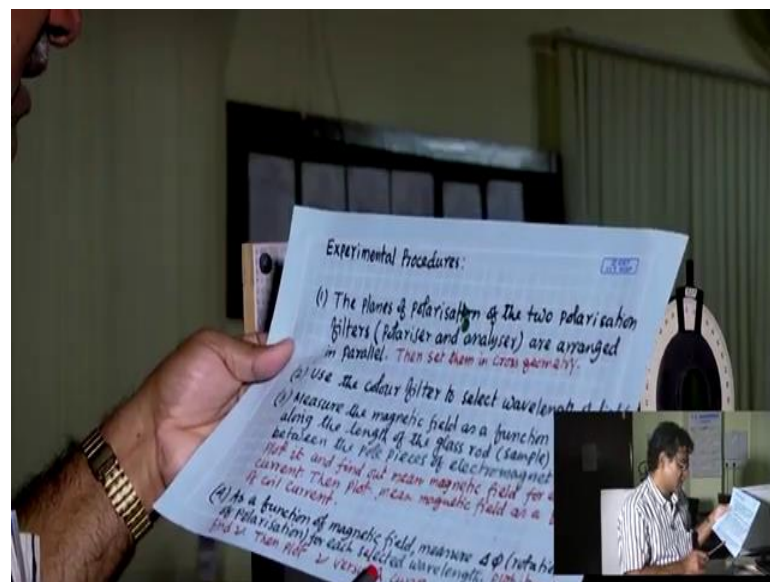 Experimental Procedures:
(1) The planes of polarisation of the two polarisation
filters (Polariser and analyser) are arranged
in parallel. Then set them in cross geometry.
(2) Use the colour filter to select wavelength of
(3) Measure the magnetic field as a function
along the length of the glass rod (sample)
between the pole pieces of electromagnet
Plot it and find out mean magnetic field for
current. Then Plot, mean magnetic field as a
of coil current.
(4) As a function of magnetic field, measure Δφ (rotati
of polarisation) for each selected wavelength.
find ν. Then Plot ν versus λ